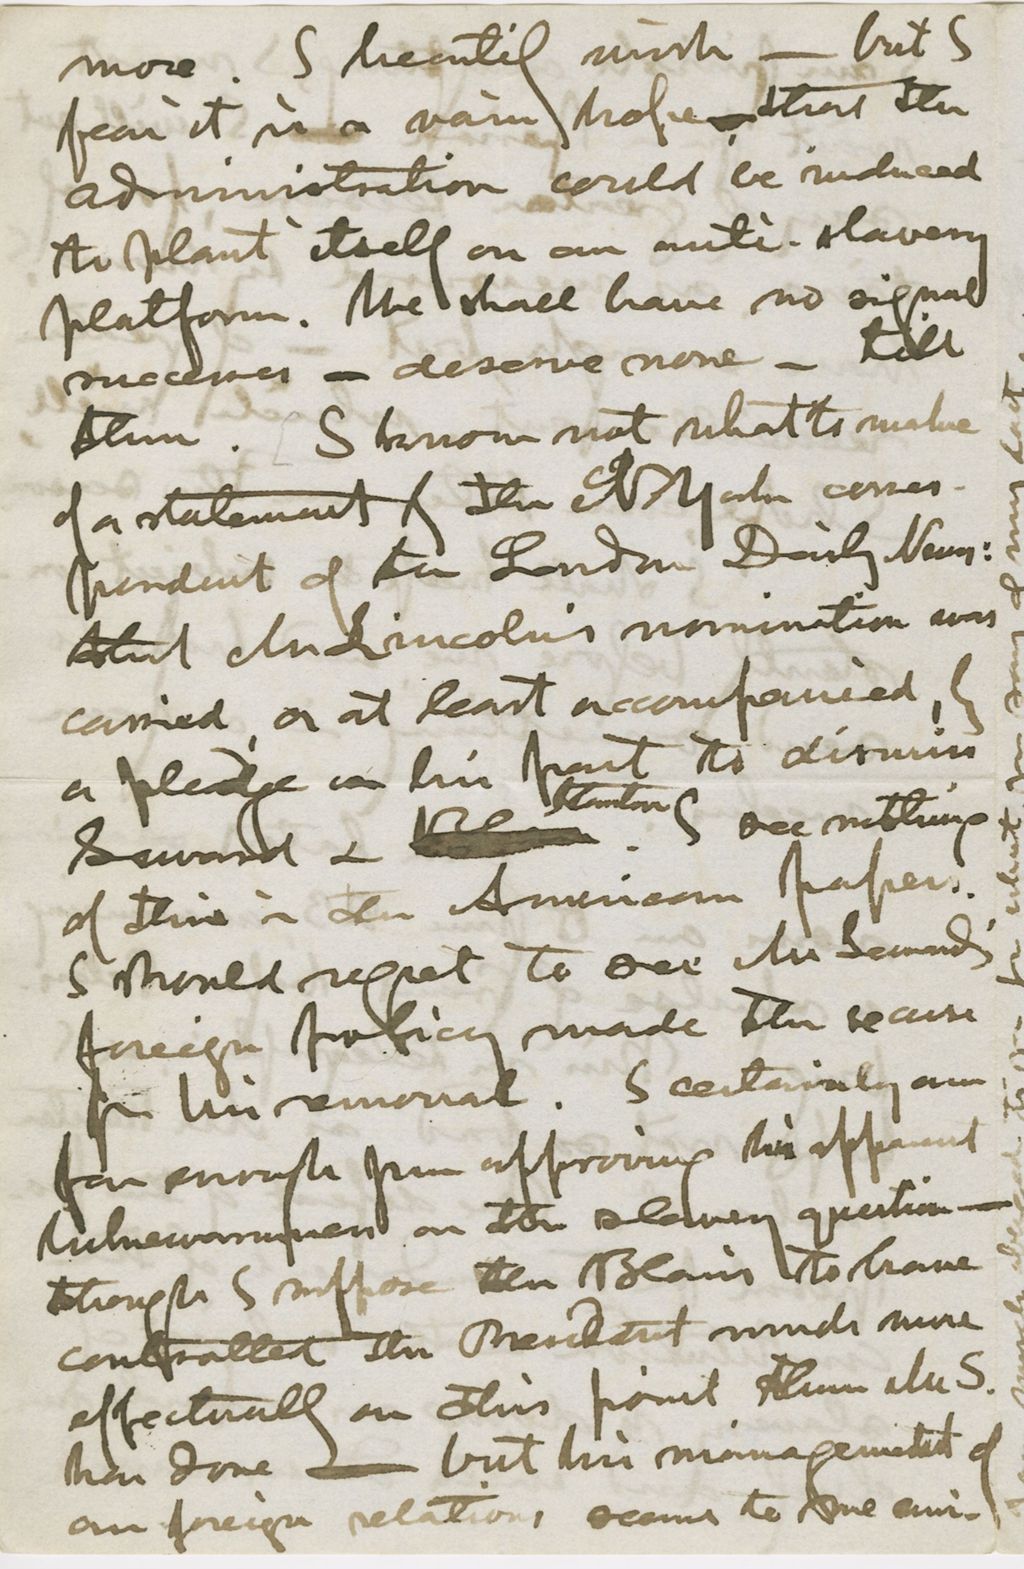 more. I heartily wish — but I
fear it is a vain hope — that the
administration could be induced
to plant itself on an anti-slavery
platform. We shall have no signal
successes — deserve none — till
then. I know not what to make
of a statement of the N York corres-
pondent of the London Daily News:
that Mr Lincoln's nomination was
carried, or at least accompanied, by
a pledge on his part to dismiss
Seward & Stanton. I see nothing
of this in the American papers.
I should regret to see Mr Seward's
foreign policy made the
for his removal. I certainly am
far enough from approving his apparent
lukewarmness on the slavery question —
though I suppose the Blairs to have
controlled the President much more
effectually on this point than Mr S.
has done — but his management of
our foreign relations seems to me